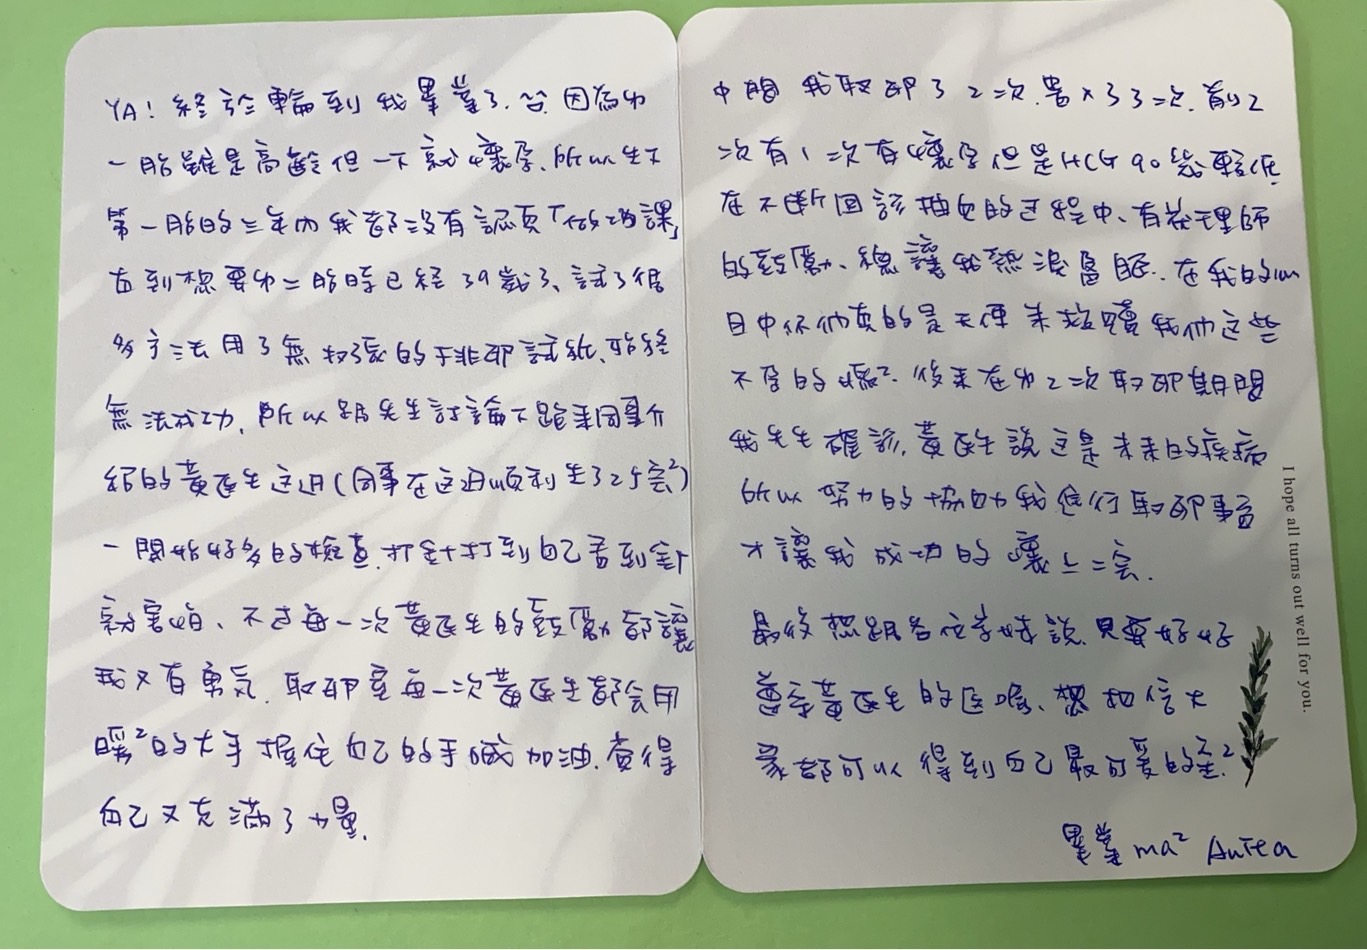 YA! 終於輪到我畢業了. 因為第
一胎雖是高齡但一下就懷孕、所以生下
第一胎的三年內我都沒有認真「做功課」
直到想要第二胎時已經39歲了、試了很
多方法用了無數張的排卵試紙、始終
無法成功, 所以跟先生討論下跟來同事介
紹的黃醫生這邊(同事在這邊順利生了2個寶²)
一開始好多的檢查.針要打到自己看到針
就害怕、不過每一次黃醫生的鼓勵都讓
我又有勇氣. 取卵室每一次黃醫生都會用
暖²的大手握住自己的手喊加油.覺得
自己又充滿了力量.
中間我取卵了2次.植入了3次.前2
次有1次有懷孕但是HCG 90幾較低
在不斷回診抽血的過程中、有護理師
的鼓勵、總讓我熱淚盈眶. 在我的心
目中你們真的是天使來拯救我們這些
不孕的媽². 後來在第2次取卵期間
我先生確診, 黃醫生說這是未來的疾病
所以努力的協助我進行取卵事宜
才讓我成功的懷上二寶.
最後想跟各位李妹說.只要好好
遵守黃醫生的醫囑、想相信大
家都可以得到自己最可愛的寶²
畢業ma² Antea
I hope all turns out well for you.